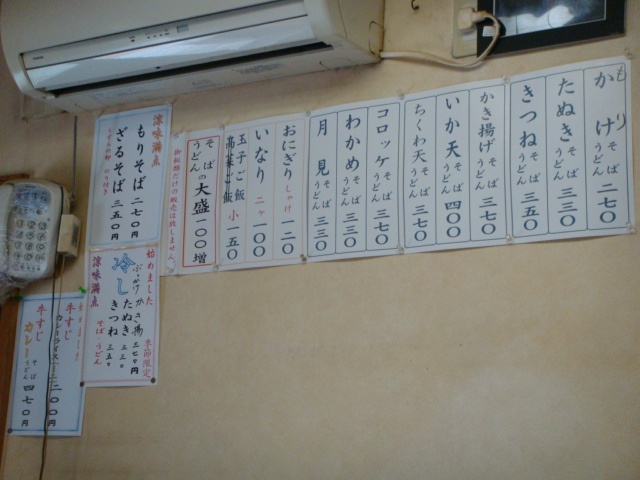 もり
かけ そば うどん 二七〇
たぬき そば うどん 三三〇
きつね そば うどん 三五〇
かき揚げ そば うどん 三七〇
いか天 そば うどん 四〇〇
ちくわ天 そば うどん 三七〇
コロッケ そば うどん 三七〇
わかめ そば うどん 三三〇
月見 そば うどん 三三〇
おにぎり しゃけ 一二〇
いなり 二ヶ 一〇〇
玉子ご飯
高菜ご飯 小 一五〇
そば うどん の大盛 一〇〇増
御飯類だけの販売は致しません。
涼味満点
もりそば 二七〇円
ざるそば 三五〇円
始めました
ぶっかけ
冷し
かき揚 三七〇円
たぬき 三三〇
きつね 三五〇
そば・うどん
季節限定
涼味満点
牛すじ
カレーライス
牛すじ
カレー そば うどん 四七〇円